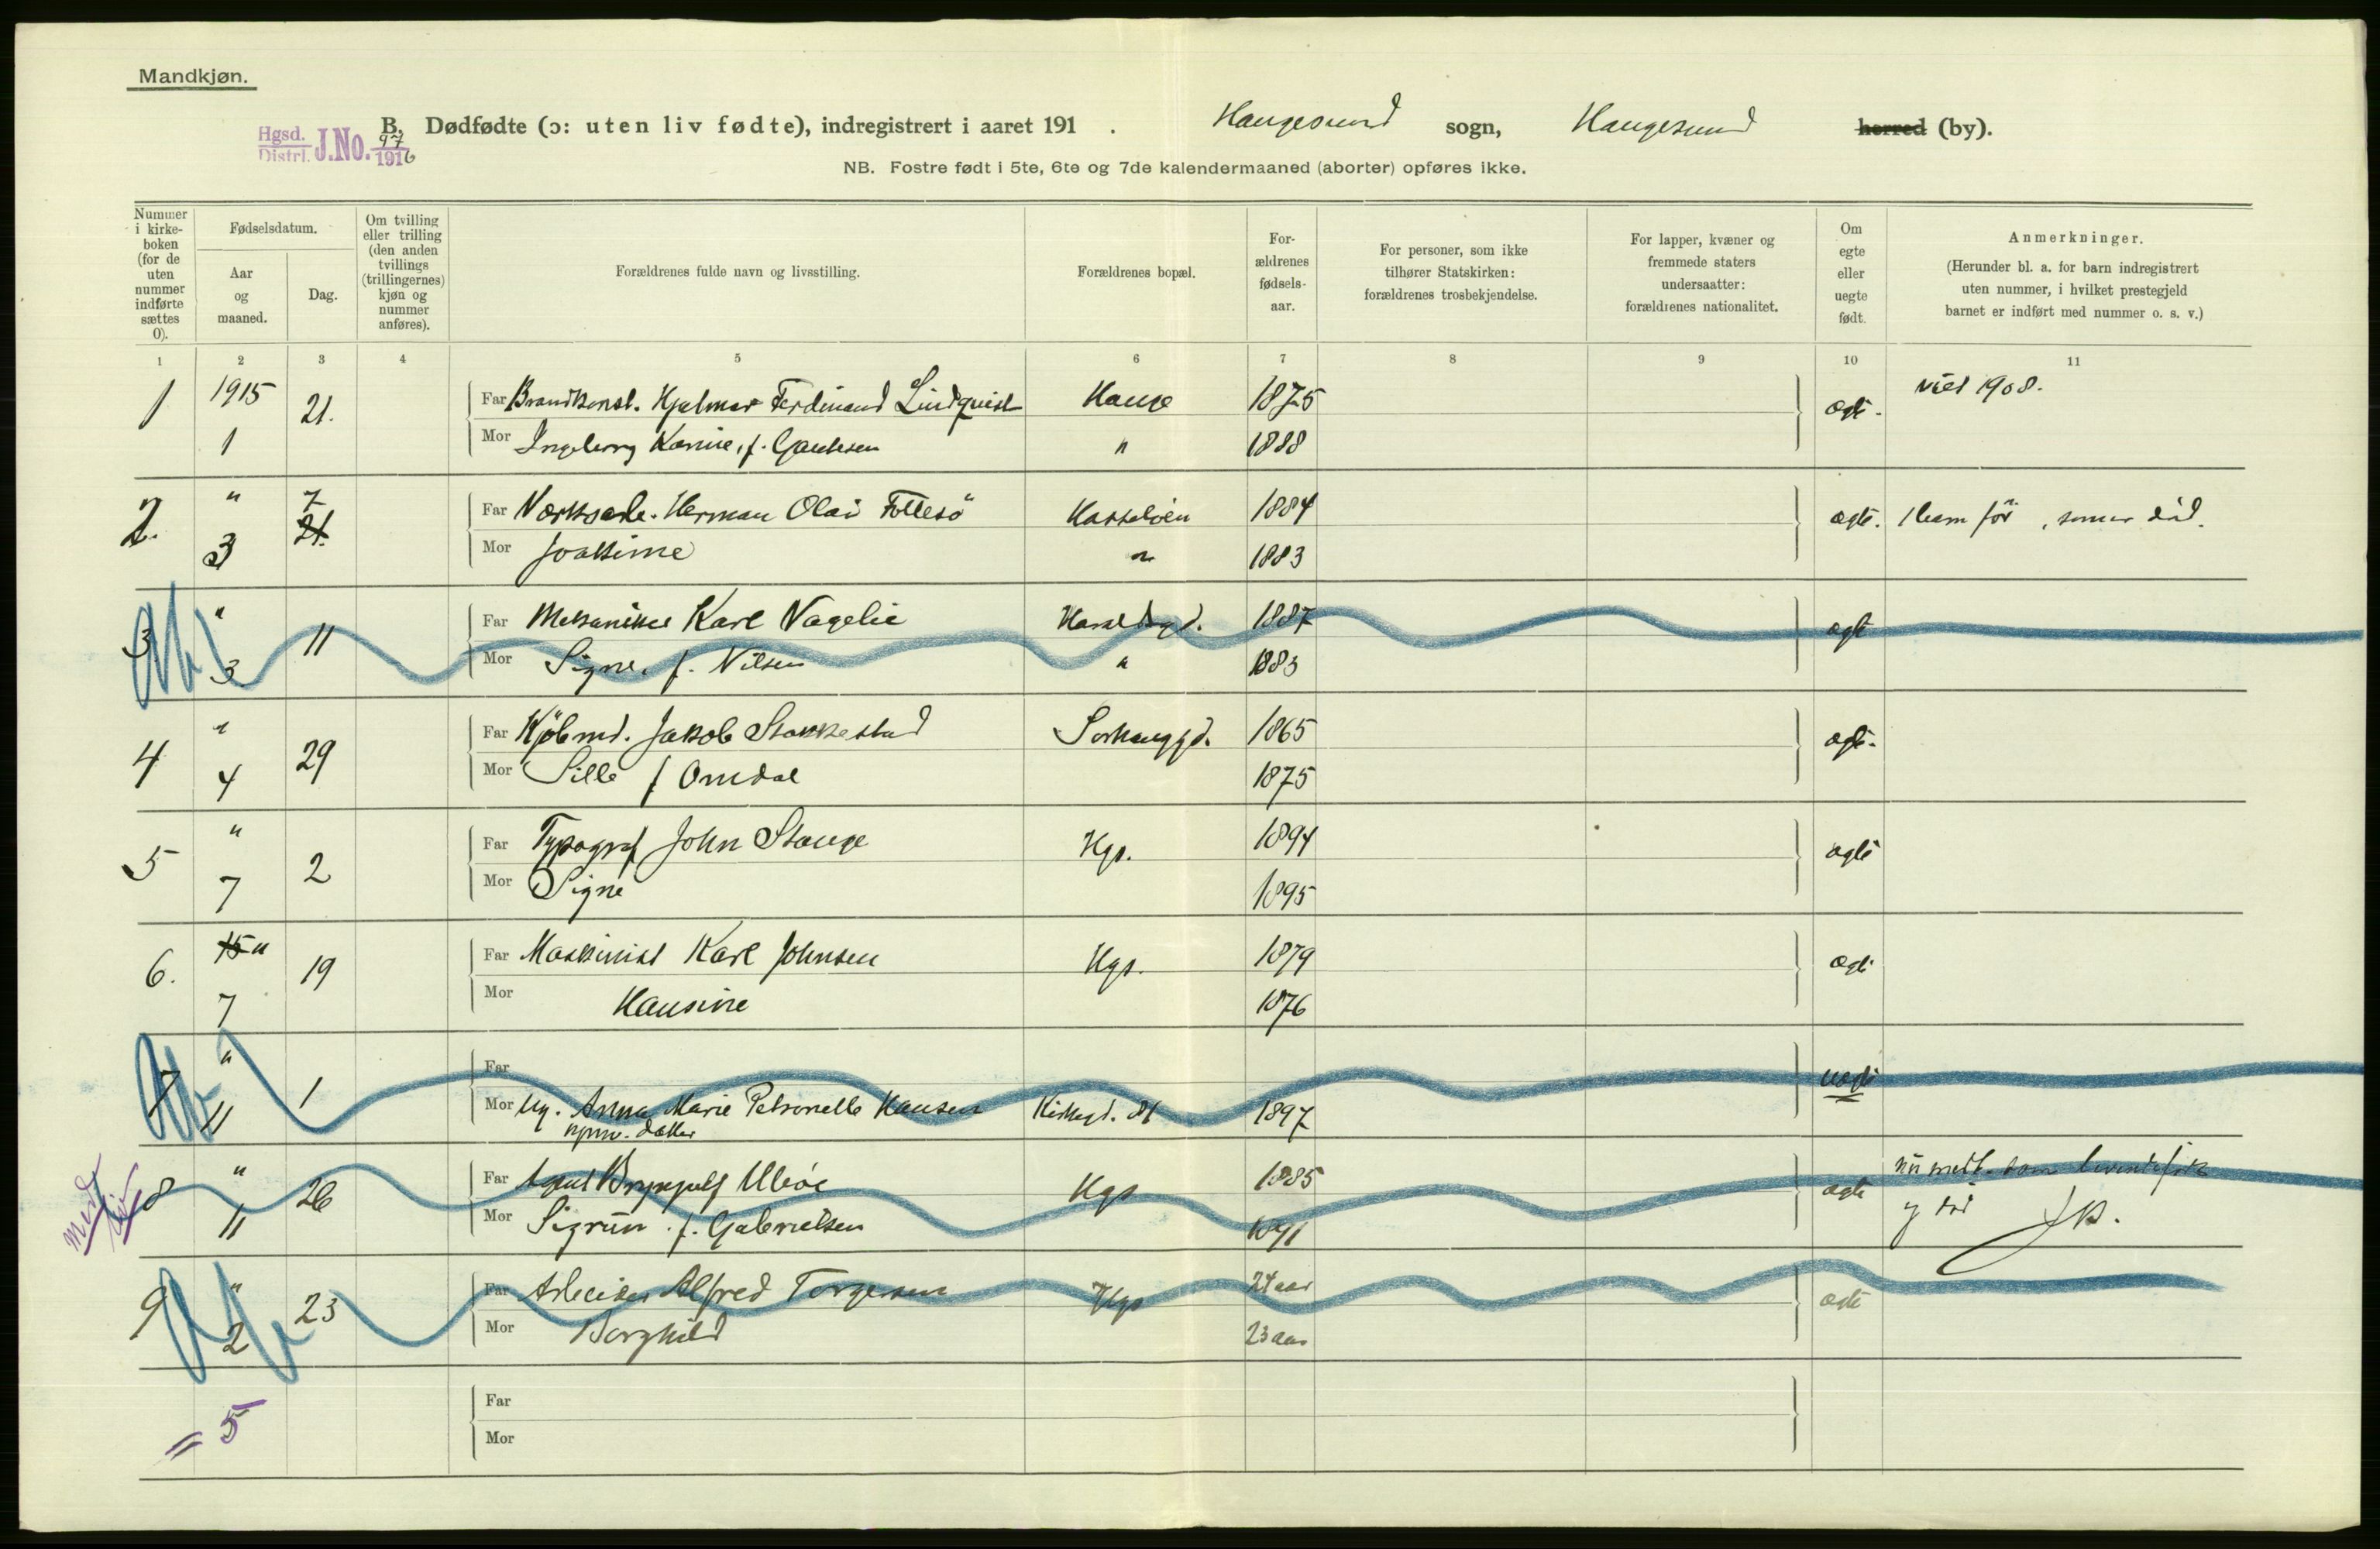 Mandkjøn.
Hgsd. Distrl. J.No. 97 1916
B. Dødfødte (ɔ: uten liv fødte), indregistrert i aaret 191 . Haugesund sogn, Haugesund herred (by).
NB. Fostre født i 5te, 6te og 7de kalendermaaned (aborter) opføres ikke.
Nummer i kirke- boken (for de uten nummer indførte sættes 0).
Fødselsdatum.
Aar og maaned.
Dag.
Om tvilling eller trilling (den anden tvillings (trillingernes) kjøn og nummer anføres).
Forældrenes fulde navn og livsstilling.
Forældrenes bopæl.
For- ældrenes fødsels- aar.
For personer, som ikke tilhører Statskirken: forældrenes trosbekjendelse.
For lapper, kvæner og fremmede staters undersaatter: forældrenes nationalitet.
Om egte eller uegte født.
Anmerkninger.
(Herunder bl. a. for barn indregistrert uten nummer, i hvilket prestegjeld barnet er indført med nummer o. s. v.)
1 2 3 4 5 6 7 8 9 10 11
1 1915 1 21. Far Brandkonst. Hjalmar Ferdinand Lindquist Hauge 1875 ægte. viet 1908.
Mor Ingeborg Karine, f. Gautesen " 1888
2. " 3 7 21. Far Verksarb. Herman Olai Føllesø 1884 ægte. 1 barn før, som er død.
Mor Joakime " 1883
3 " 3 11 Far Mekaniker Karl Vagelie Haraldsgd. 1887 ægte
Mor Signe, f. Nilsen " 1883
4 " 4 29 Far Kjøbmd. Jakob Stakkestad Sørhauggd. 1865 ægte.
Mor Sille f Omdal 1875
5 " 7 2 Far Typograf John Stange Hgs. 1894 ægte
Mor Signe 1895
6. 15 " 7 19 Far Maskinist Karl Johnsen Hgs. 1879 ægte
Mor Hansine 1876
7 " 11 1 Far uægte
Mor Ug. Anna Marie Petronelle Hansen Kirkegd. 81 1897
datter
8 " 11 26 Far Agent Brynjulf Ulvøe Hgs 1885 ægte
Mor Sigrun f. Gabrielsen 1891 og død
9 " 2 23 Far Arbeider Alfred Torgersen Hgs 24 aar ægte
Mor Borghild 23 aar
= 5 Far
Mor